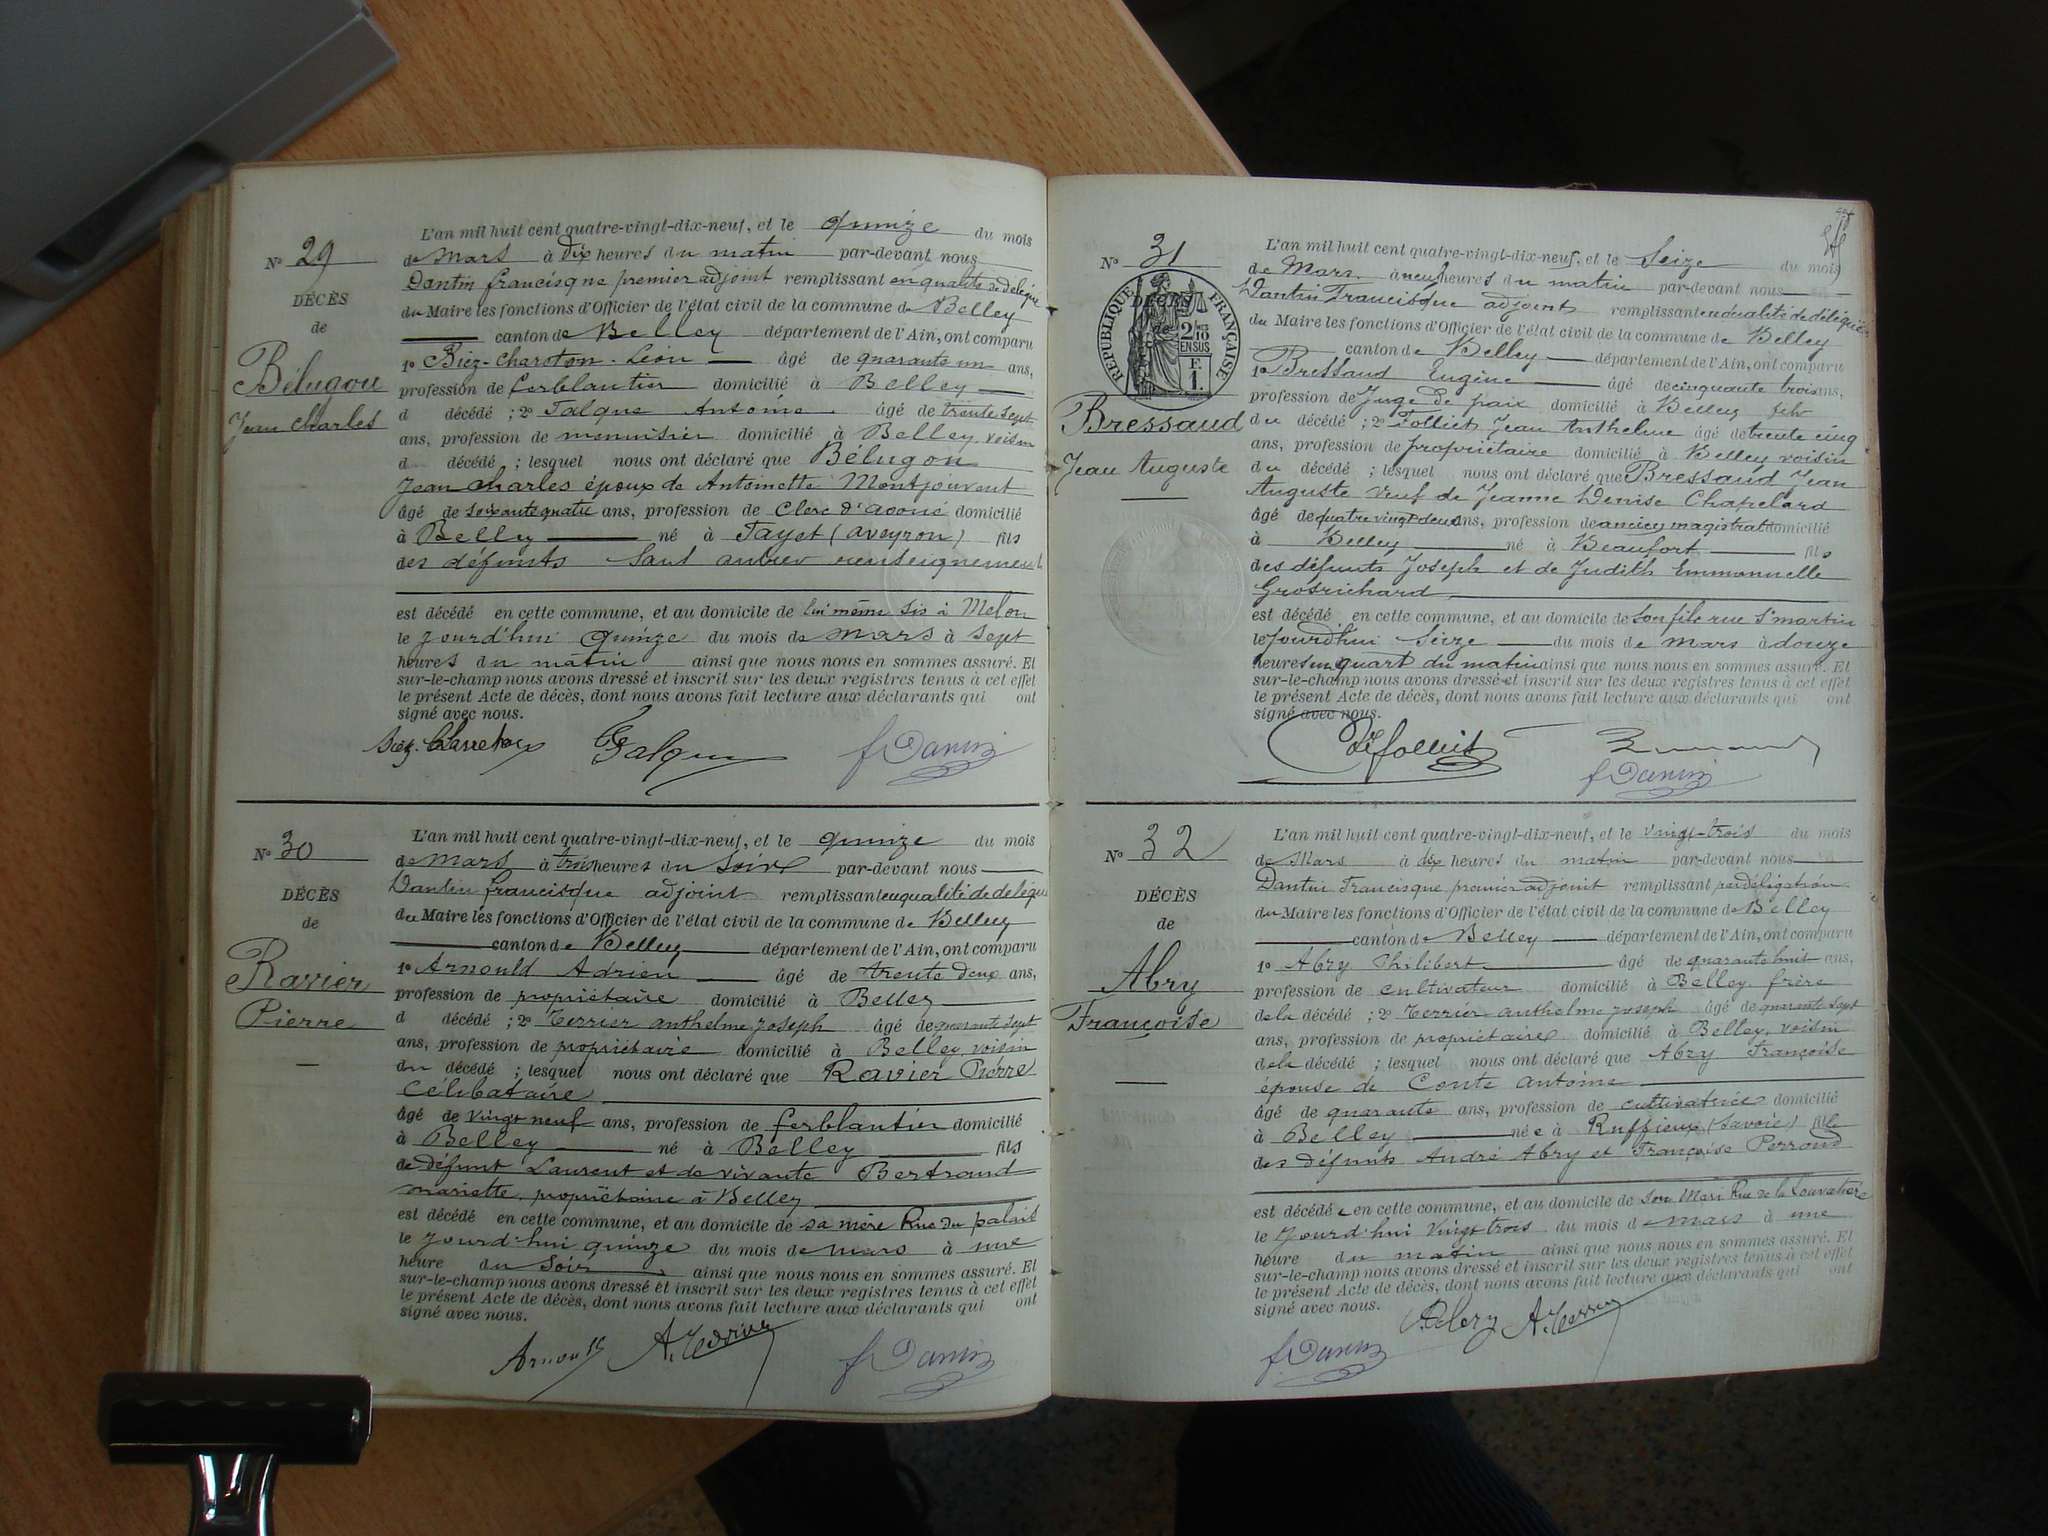 N° 29
DÉCÈS
de
Bélugou
Jean Charles
L'an mil huit cent quatre-vingt-dix-neuf, et le quinze du mois
de Mars à dix heures du matin par-devant nous
Dantin francisque premier adjoint remplissant en qualité de délégué
du Maire les fonctions d'Officier de l'état civil de la commune de Belley
canton de Belley département de l'Ain, ont comparu
1° Biéz-Charoton Léon âgé de quarante un ans,
profession de ferblantier domicilié à Belley
d décédé ; 2° Falque Antoine âgé de trente sept
ans, profession de menuisier domicilié à Belley, voisin
d décédé ; lesquel nous ont déclaré que Bélugou
Jean Charles époux de Antoinette Montjouvent
âgé de soixante quatre ans, profession de Clerc d'avoué domicilié
à Belley né à Tayet (Aveyron) fils
des défunts sans autres renseignements
est décédé en cette commune, et au domicile de lui même sis à Melon
le jourd'hui quinze du mois de Mars à sept
heures du matin ainsi que nous nous en sommes assuré. Et
sur-le-champ nous avons dressé et inscrit sur les deux registres tenus à cet effet
le présent Acte de décès, dont nous avons fait lecture aux déclarants qui ont
signé avec nous.
Falque f Dantin
N° 30
DÉCÈS
de
Ravier
Pierre
L'an mil huit cent quatre-vingt-dix-neuf, et le quinze du mois
de Mars à trois heures du soir par-devant nous
Dantin francisque adjoint remplissant en qualité de délégué
du Maire les fonctions d'Officier de l'état civil de la commune de Belley
canton de Belley département de l'Ain, ont comparu
1° Arnould Adrien âgé de trente deux ans,
profession de propriétaire domicilié à Belley
d décédé ; 2° Terrier anthelme joseph âgé de quarante sept
ans, profession de propriétaire domicilié à Belley, voisin
du décédé ; lesquel nous ont déclaré que Ravier Pierre
Célibataire
âgé de vingt neuf ans, profession de ferblantier domicilié
à Belley né à Belley fils
de défunt Laurent et de vivante Bertrand
mariette, propriétaire à Belley
est décédé en cette commune, et au domicile de sa mère Rue du palais
le jourd'hui quinze du mois de mars à une
heure du soir ainsi que nous nous en sommes assuré. Et
sur-le-champ nous avons dressé et inscrit sur les deux registres tenus à cet effet
le présent Acte de décès, dont nous avons fait lecture aux déclarants qui ont
signé avec nous.
Arnould A. Terrier f Dantin
N° 31
RÉPUBLIQUE FRANÇAISE
DÉCÈS
de
2/10 EN SUS
F. 1.
Bressaud
Jean Auguste
L'an mil huit cent quatre-vingt-dix-neuf, et le Seize du mois
de Mars à neuf heures du matin par-devant nous
Dantin Francisque adjoint remplissant en qualité de délégué
du Maire les fonctions d'Officier de l'état civil de la commune de Belley
canton de Belley département de l'Ain, ont comparu
1° Bressaud Eugène âgé de cinquante trois ans,
profession de Juge de paix domicilié à Belley fils
du décédé ; 2° Folliet Jean Anthelme âgé de trente cinq
ans, profession de propriétaire domicilié à Belley voisin
du décédé ; lesquel nous ont déclaré que Bressaud Jean
Auguste veuf de Jeanne Denise Chapelard
âgé de quatre vingt deux ans, profession de ancien magistrat domicilié
à Belley né à Beaufort fils
des défunts Joseph et de Judith Emmanuelle
Grosrichard
est décédé en cette commune, et au domicile de son fils rue St martin
le jourd'hui Seize du mois de mars à douze
heures un quart du matin ainsi que nous nous en sommes assuré. Et
sur-le-champ nous avons dressé et inscrit sur les deux registres tenus à cet effet
le présent Acte de décès, dont nous avons fait lecture aux déclarants qui ont
signé avec nous.
f Dantin
N° 32
DÉCÈS
de
Abry
Françoise
L'an mil huit cent quatre-vingt-dix-neuf, et le vingt-trois du mois
de Mars à dix heures du matin par-devant nous
Dantin Francisque premier adjoint remplissant par délégation
du Maire les fonctions d'Officier de l'état civil de la commune de Belley
canton de Belley département de l'Ain, ont comparu
1° Abry Philibert âgé de quarante huit ans,
profession de cultivateur domicilié à Belley, frère
de la décédé ; 2° Terrier anthelme joseph âgé de quarante sept
ans, profession de propriétaire domicilié à Belley, voisin
de la décédé ; lesquel nous ont déclaré que Abry Françoise
épouse de Conte antoine
âgé de quarante ans, profession de cultivatrice domicilié
à Belley née à Ruffieux (Savoie) fille
des défunts André Abry et Françoise Perroud
est décédée en cette commune, et au domicile de son Mari Rue de la Louvatière
le jourd'hui vingt trois du mois de mars à une
heure du matin ainsi que nous nous en sommes assuré. Et
sur-le-champ nous avons dressé et inscrit sur les deux registres tenus à cet effet
le présent Acte de décès, dont nous avons fait lecture aux déclarants qui ont
signé avec nous.
f Dantin P. Abry A. Terrier